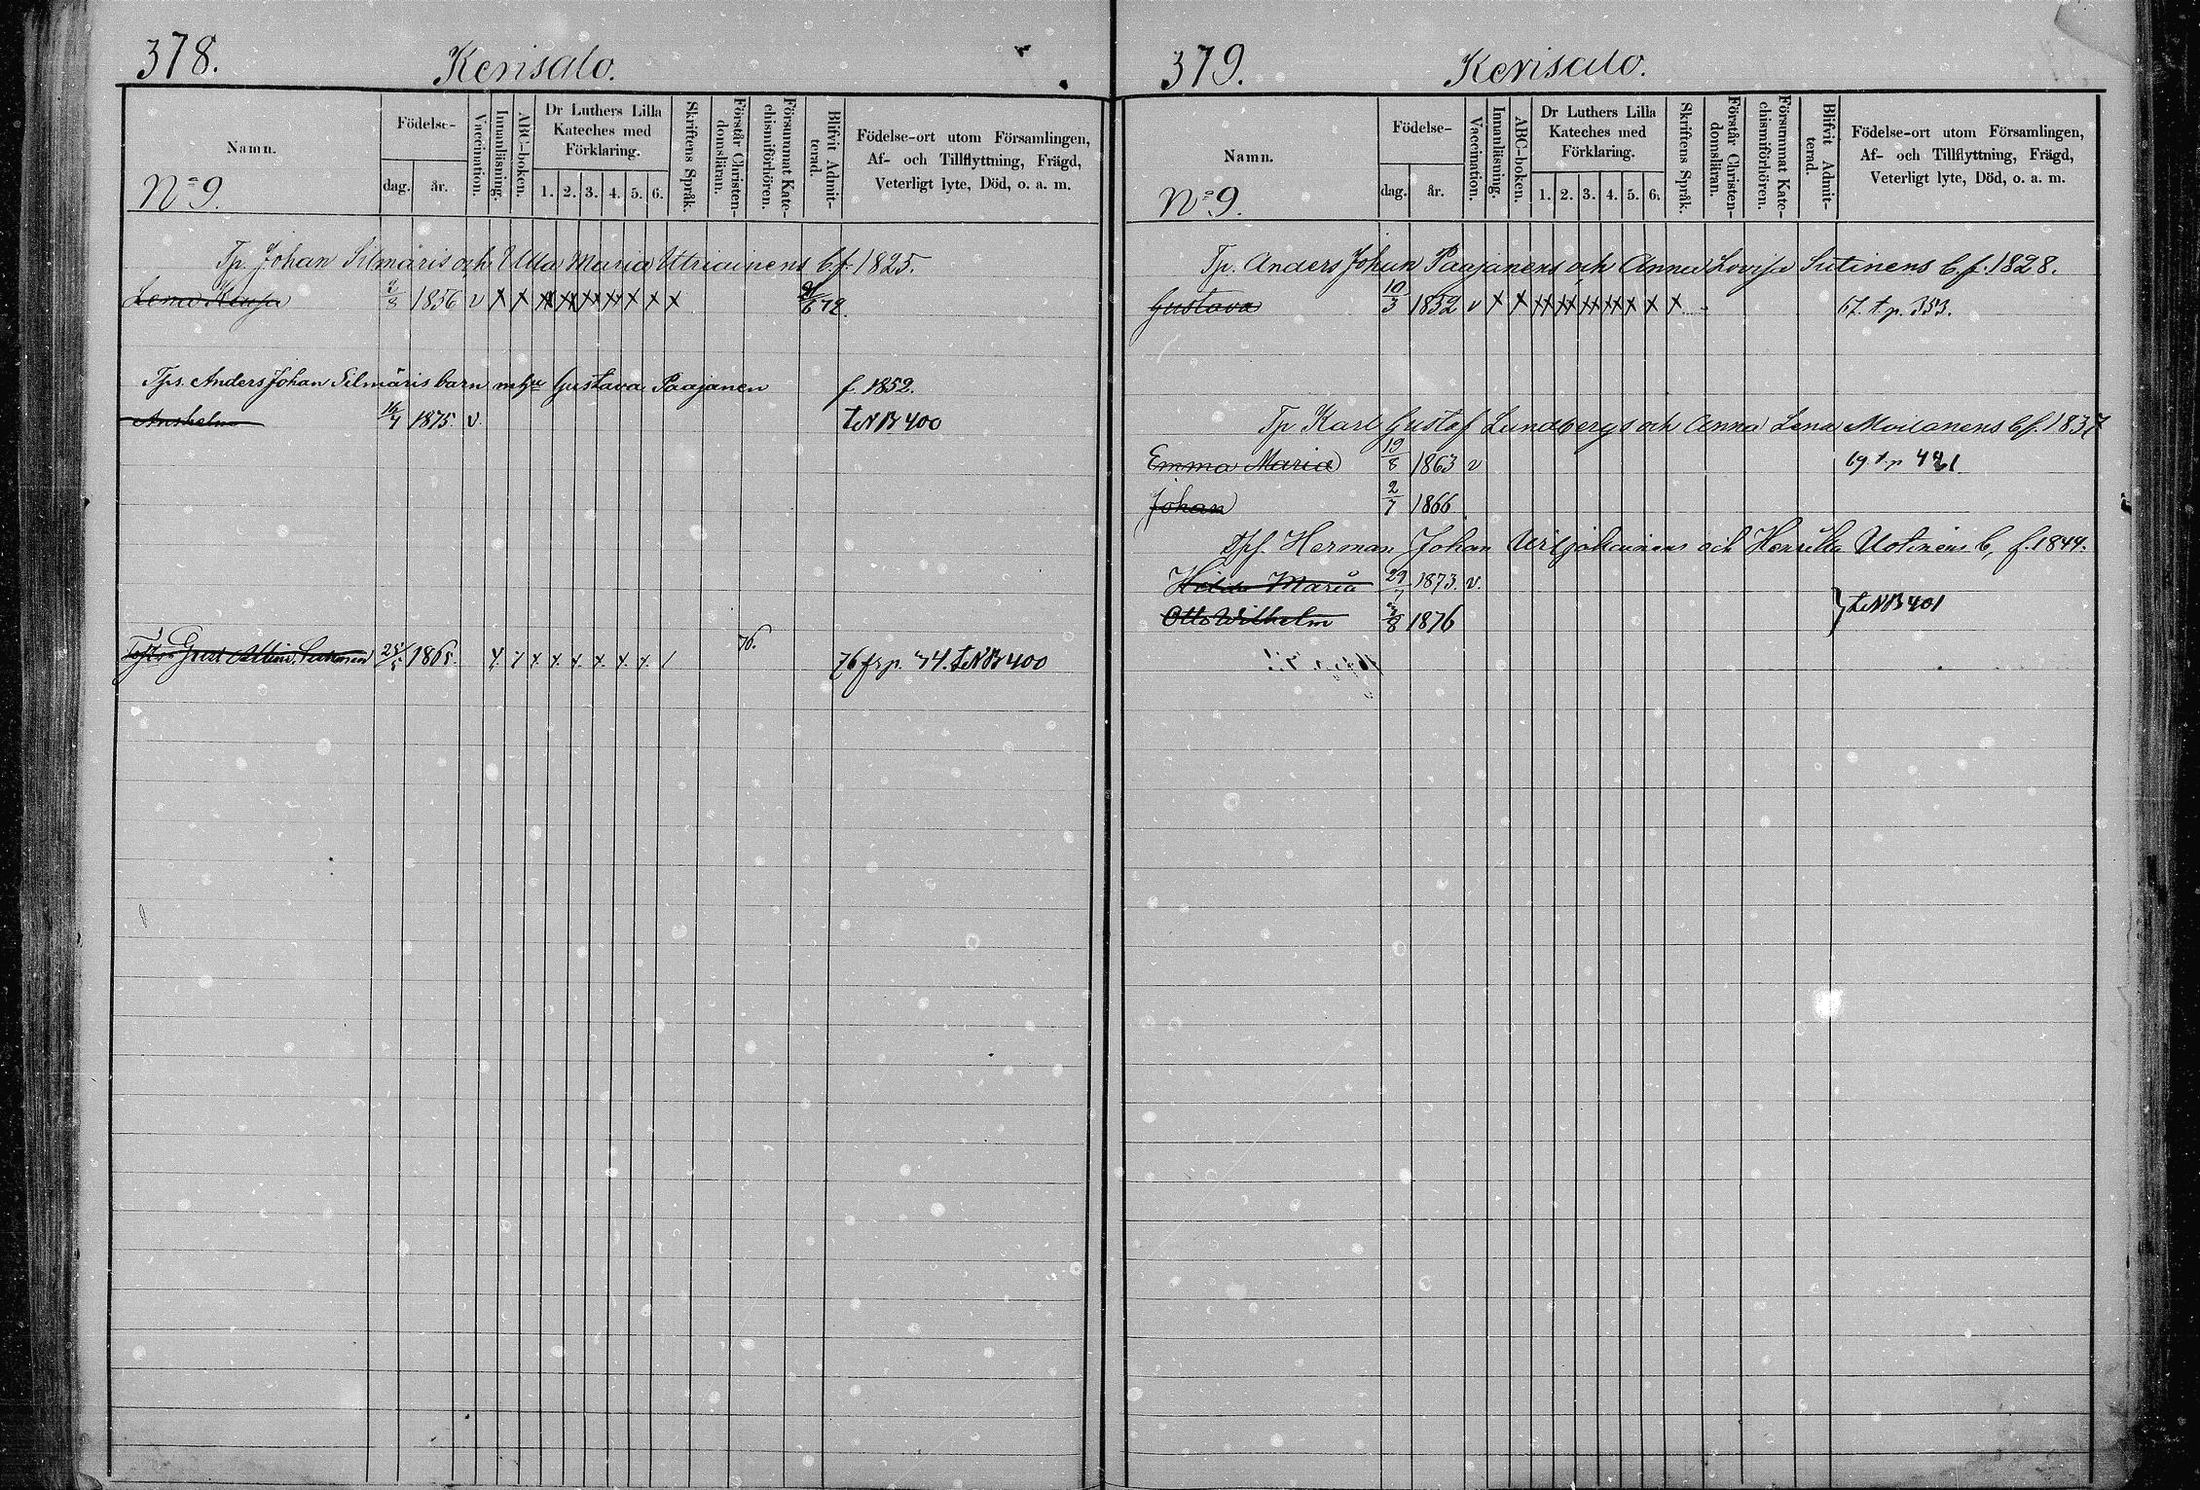 378. Kerisalo.
Namn.
No 9.
Födelse-
dag. år.
Vaccination.
Innanläsning.
ABC-boken.
Dr Luthers Lilla
Kateches med
Förklaring.
1. 2. 3. 4. 5. 6.
Skriftens Språk.
Förstår Christen-
domsläran.
Försummat Kate-
chismiförhören.
Blifvit Admit-
terad.
Födelse-ort utom Församlingen,
Af- och Tillflyttning, Frägd,
Veterligt lyte, Död, o. a. m.
Tp. Johan Silmäris och Ulla Maria Utriainens b. f. 1825.
Lena 1856 v x x x x x x x x x
Tps. Anders Johan Silmäris barn m hu Gustava Paajanen f. 1852.
Anshelm 1875. v. LNB 400
25/5 1865. 76. 76 fr p. LNB 400
379. Kerisalo.
Namn.
No 9.
Födelse-
dag. år.
Vaccination.
Innanläsning.
ABC-boken.
Dr Luthers Lilla
Kateches med
Förklaring.
1. 2. 3. 4. 5. 6.
Skriftens Språk.
Förstår Christen-
domsläran.
Försummat Kate-
chismiförhören.
Blifvit Admit-
terad.
Födelse-ort utom Församlingen,
Af- och Tillflyttning, Frägd,
Veterligt lyte, Död, o. a. m.
Tp. Anders Johan Paajanens och Anna Lovisa Sutinens b. f. 1828.
Gustava 10/3 1852 v x x x x x x x x x 67. t. p. 353.
Tp Karl Gustaf Lundbergs och Anna Lena Moilanens b f. 1837
Emma Maria 19/8 1863 v 69. t. p
Johan 2/7 1866
Herman Johan och Henrika Uotinens b, f. 1844.
Hilda Maria 29/7 1873. v.
Otto Wilhelm 1876 LNB 401